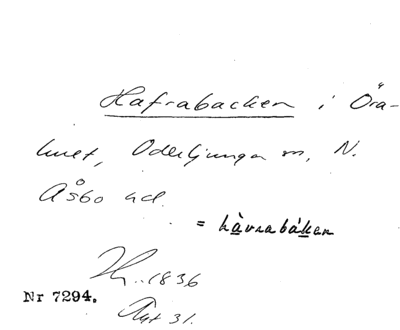 Hafrabacken i Öra-
huset, Oderljunga sn, N.
Åsbo hd.
= hàvrabákan
1836
Nr 7294.
Akt 31.